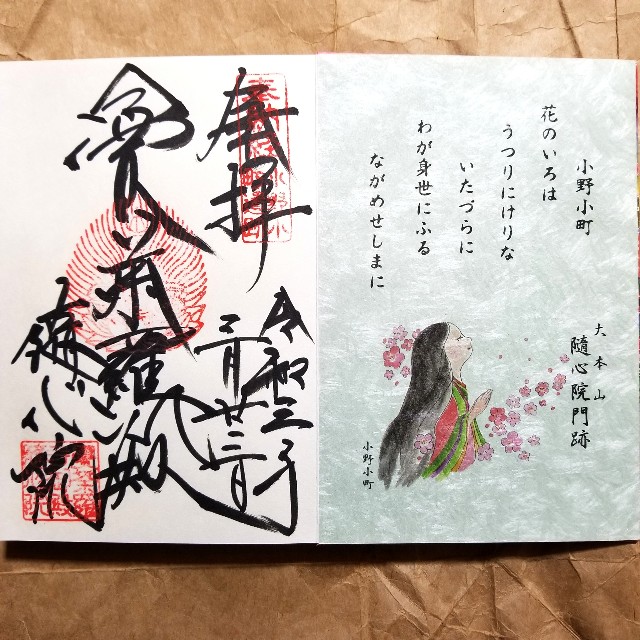 大本山
隨心院門跡
小野小町
花のいろは
うつりにけりな
いたづらに
わが身世にふる
ながめせしまに
小野小町
奉拝
令和三年
隨心院